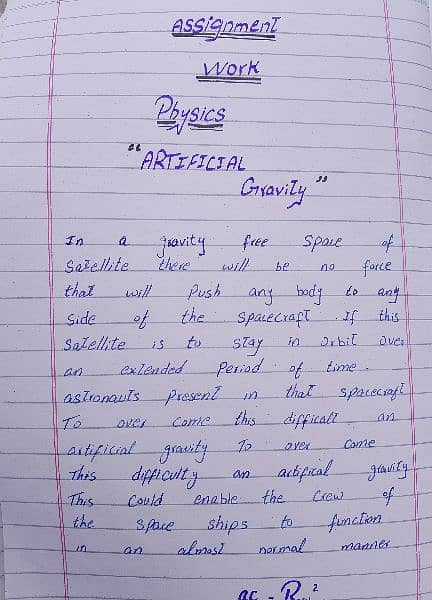 Assignment
Work
Physics
"ARTIFICIAL
Gravity"
In a gravity free space of
Satellite there will be no force
that will Push any body to any
side of the spacecraft. If this
Satellite is to stay in orbit over
an extended Period of time.
astronauts Present in that spacecraft
To over come this difficult an
artificial gravity To over come
This difficulty an artifical gravity
This Could enable the Crew of
the space ships to function
in an almost normal manner
ac = R 2